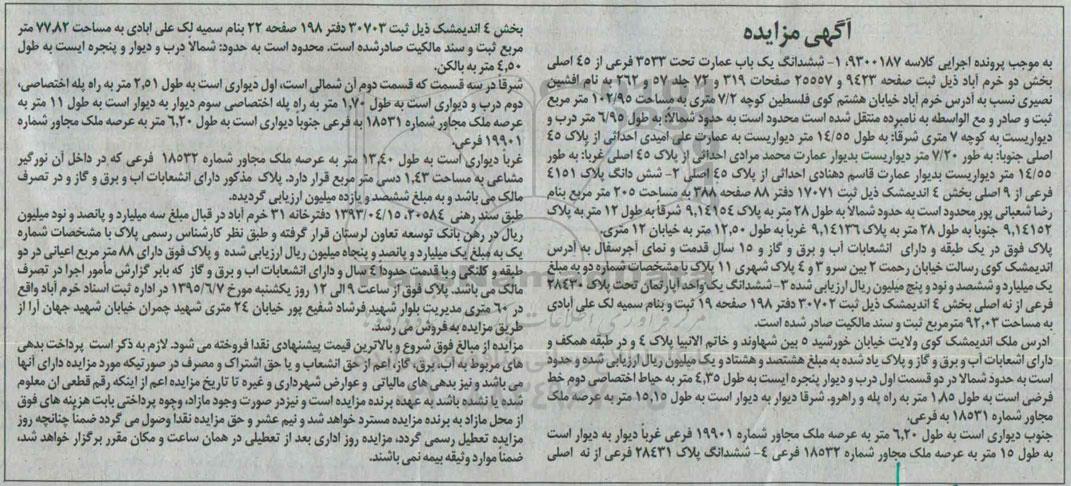 آگهی مزایده
به موجب پرونده اجرایی کلاسه ۹۳۰۰۱۸۷، ۱- ششدانگ یک باب عمارت تحت ۳۵۳۳ فرعی از ۴۵ اصلی
بخش دو خرم آباد ذیل ثبت صفحه ۹۴۲۳ و ۲۵۵۵۷ صفحات ۳۱۹ و ۷۲ جلد ۵۷ و ۲۶۲ به نام افشین
نصیری نسب به آدرس خرم آباد خیابان هشتم کوی فلسطین کوچه ۷/۲ متری به مساحت ۱۰۲/۹۵ متر مربع
ثبت و صادر و مع الواسطه به نامبرده منتقل شده است محدود است به حدود شمالاً: به طول ۶/۹۵ متر درب و
دیواریست به کوچه ۷ متری شرقا: به طول ۱۴/۵۵ متر دیواریست به عمارت علی امیدی احداثی از پلاک ۴۵
اصلی جنوبا: به طور ۷/۲۰ متر دیواریست بدیوار عمارت محمد مرادی احداثی از پلاک ۴۵ اصلی غربا: به طور
۱۴/۵۵ متر دیواریست بدیوار عمارت قاسم دهنادی احداثی از پلاک ۴۵ اصلی ۲- شش دانگ پلاک ۴۱۵۱
فرعی از ۹ اصلی بخش ۴ اندیمشک ذیل ثبت ۱۷۰۷۱ دفتر ۸۸ صفحه ۳۸۸ به مساحت ۲۰۵ متر مربع بنام
رضا شعبانی پور محدود است به حدود شمالاً به طول ۲۸ متر به پلاک ۹,۱۴۱۵۴ شرقا به طول ۱۲ متر به پلاک
۹,۱۴۱۵۲ جنوبا به طول ۲۸ متر به پلاک ۹,۱۴۱۳۶ غرباً به طول ۱۲,۵۰ متر به خیابان ۱۲ متری.
پلاک فوق در یک طبقه و دارای انشعابات آب و برق و گاز و ۱۵ سال قدمت و نمای آجرسفال به آدرس
اندیمشک کوی رسالت خیابان رحمت ۲ بین سرو ۳ و ۴ پلاک شهری ۱۱ پلاک با مشخصات شماره دو به مبلغ
یک میلیارد و ششصد و نود و پنج میلیون ریال ارزیابی شده ۳- ششدانگ یک واحد آپارتمان تحت پلاک ۲۸۴۳۰
فرعی از نه اصلی بخش ۴ اندیمشک ذیل ثبت ۳۰۷۰۲ دفتر ۱۹۸ صفحه ۱۹ ثبت و بنام سمیه لک علی آبادی
به مساحت ۹۲,۰۳ مترمربع ثبت و سند مالکیت صادر شده است.
آدرس ملک اندیمشک کوی ولایت خیابان خورشید ۵ بین شهاوند و خاتم الانبیا پلاک ۴ و در طبقه همکف و
دارای اشعابات آب و برق و گاز و پلاک یاد شده به مبلغ هشتصد و هشتاد و یک میلیون ریال ارزیابی شده و حدود
است به حدود شمالا در دو قسمت اول درب و دیوار پنجره ایست به طول ۴,۳۵ متر به حیاط اختصاصی دوم خط
فرضی است به طول ۱,۸۵ متر به راه پله و راهرو. شرقا دیوار به دیوار است به طول ۱۵,۱۵ متر به عرصه ملک
مجاور شماره ۱۸۵۳۱ به فرعی.
جنوب دیواری است به طول ۶,۲۰ متر به عرصه ملک مجاور شماره ۱۹۹۰۱ فرعی غرباً دیوار به دیوار است
به طول ۱۵ متر به عرصه ملک مجاور شماره ۱۸۵۳۲ فرعی ۴- ششدانگ پلاک ۲۸۴۳۱ فرعی از نه اصلی
بخش ۴ اندیمشک ذیل ثبت ۳۰۷۰۳ دفتر ۱۹۸ صفحه ۲۲ بنام سمیه لک علی ابادی به مساحت ۷۷,۸۲ متر
مربع ثبت و سند مالکیت صادرشده است. محدود است به حدود: شمالاً درب و دیوار و پنجره ایست به طول
۴,۵۰ متر به بالکن.
شرقا در سه قسمت که قسمت دوم آن شمالی است، اول دیواری است به طول ۲,۵۱ متر به راه پله اختصاصی،
دوم درب و دیواری است به طول ۱,۷۰ متر به راه پله اختصاصی سوم دیوار به دیوار است به طول ۱۱ متر به
عرصه ملک مجاور شماره ۱۸۵۳۱ به فرعی جنوبا دیواری است به طول ۶,۲۰ متر به عرصه ملک مجاور شماره
۱۹۹۰۱ فرعی.
غربا دیواری است به طول ۱۳,۴۰ متر به عرصه ملک مجاور شماره ۱۸۵۳۲ فرعی که در داخل آن نورگیر
مشاعی به مساحت ۱,۴۳ دسی متر مربع قرار دارد. پلاک مذکور دارای انشعابات اب و برق و گاز و در تصرف
مالک می باشد و به مبلغ ششصد و یازده میلیون ارزیابی گردیده.
طبق سند رهنی ۲۰۵۸۴، ۱۳۹۳/۰۴/۱۵ دفترخانه ۳۱ خرم آباد در قبال مبلغ سه میلیارد و پانصد و نود میلیون
ریال در رهن بانک توسعه تعاون لرستان قرار گرفته و طبق نظر کارشناس رسمی پلاک با مشخصات شماره
یک به مبلغ یک میلیارد و پانصد و پنجاه میلیون ریال ارزیابی شده و پلاک فوق دارای ۸۸ متر مربع اعیانی در دو
طبقه و کلنگی و با قدمت حدودا ۴ سال و دارای انشعابات اب و برق و گاز که بابر گزارش مأمور اجرا در تصرف
مالک می باشد. پلاک فوق از ساعت ۹ الی ۱۲ روز یکشنبه مورخ ۱۳۹۵/۶/۷ در اداره ثبت اسناد خرم آباد واقع
در ۶۰ متری مدیریت بلوار شهید فرشاد شفیع پور خیابان ۲۴ متری شهید چمران خیابان شهید جهان آرا از
طریق مزایده به فروش می رسد.
مزایده از مبالغ فوق شروع و بالاترین قیمت پیشنهادی نقدا فروخته می شود. لازم به ذکر است پرداخت بدهی
های مربوط به آب، برق، گاز، اعم از حق انشعاب و یا حق اشتراک و مصرف در صورتیکه مورد مزایده دارای آنها
می باشد و نیز بدهی های مالیاتی و عوارض شهرداری و غیره تا تاریخ مزایده اعم از اینکه رقم قطعی ان معلوم
شده یا نشده باشد به عهده برنده مزایده است و نیز در صورت وجود مازاد، وجوه پرداختی بابت هزینه های فوق
از محل مازاد به برنده مزایده مسترد خواهد شد و نیم عشر و حق مزایده نقدا وصول می گردد ضمناً چنانچه روز
مزایده تعطیل رسمی گردد، مزایده روز اداری بعد از تعطیلی در همان ساعت و مکان مقرر برگزار خواهد شد،
ضمناً موارد وثیقه بیمه نمی باشند.